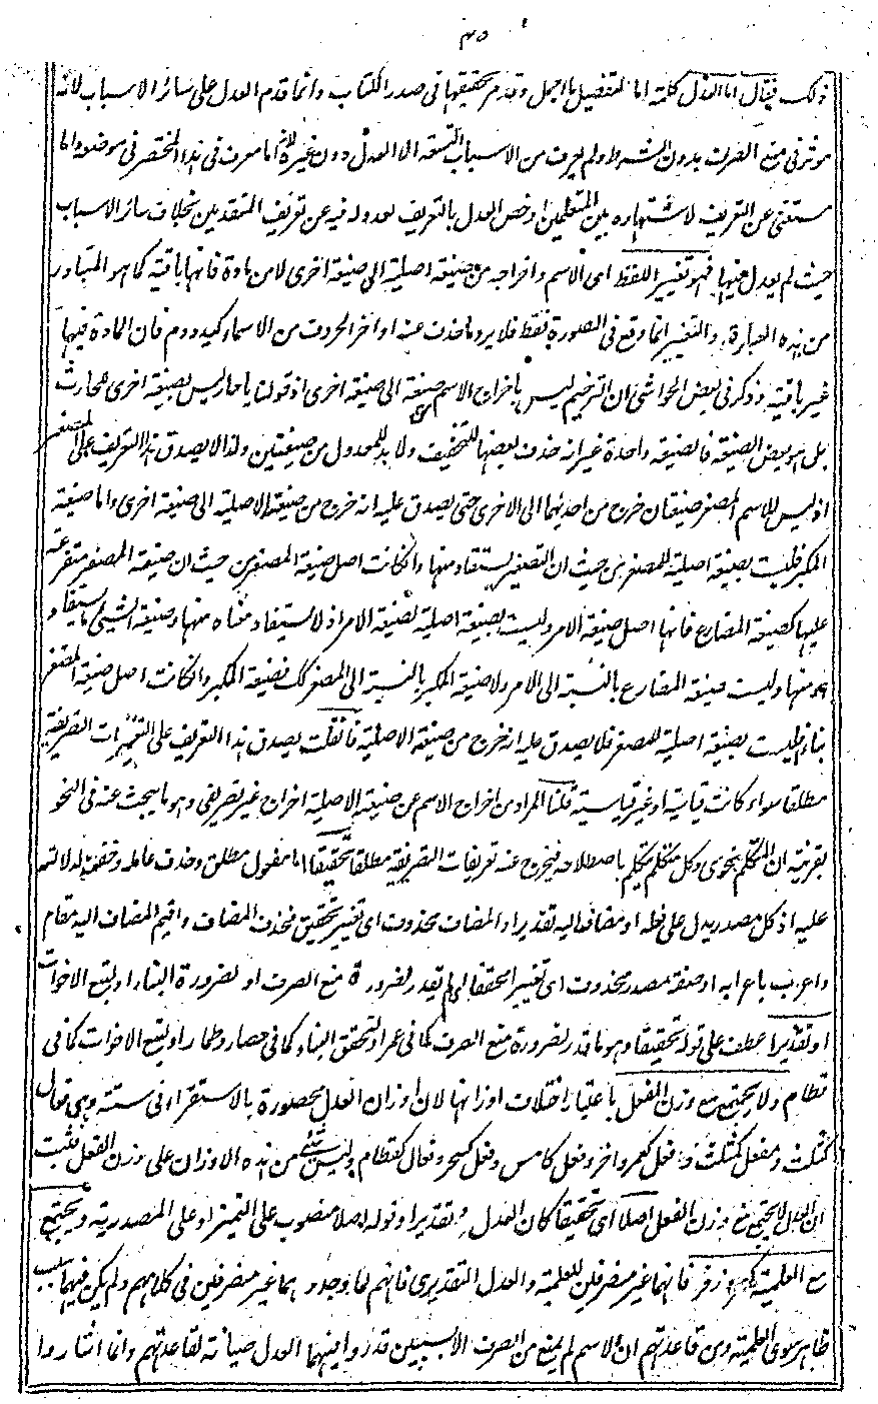 ٣٥
ذلك فيقال اما العدل كلمة اما لتفصيل ما اجمل وقد مر تحقيقها فى صدر الكتاب وانما قدم العدل على سائر الاسباب لانه
موثر فى منع الصرف بدون الشرط ولم يعرف من الاسباب التسعة الا العدل دون غيره لانها معرف فى هذا المختصر فى موضعه واما
مستغنى عن التعريف لاشتهاره بين المتعلمين او خص العدل بالتعريف لعدوله فيه عن تعريف المتقدمين بخلاف سائر الاسباب
حيث لم يعدل فيها فهو تغيير اللفظ اى الاسم واخراجه من صيغة اصلية الى صيغة اخرى لا من مادة فانها باقية كما هو المتبادر
من هذه العبارة والتغيير انما وقع فى الصورة فقط فلا يرد ما حذفت عنه اواخر الحروف من الاسماء كيد ودم فان المادة فيها
غير باقية وذكر فى بعض الحواشى ان الترخيم ليس باخراج الاسم عن صيغة الى صيغة اخرى اذ قولنا يا حار ليس بصيغة اخرى لحارث
بل هو بعض الصيغة فالصيغة واحدة غير انه حذف بعضها للتخفيف ولا بد للمعدول من صيغتين ولذا لا يصدق هذا التعريف على المصغر
اذ ليس للاسم المصغر صيغتان خرج من احديهما الى الاخرى حتى يصدق عليه انه خرج من صيغته الاصلية الى صيغة اخرى واما صيغة
المكبر فليست بصيغة اصلية للمصغر من حيث ان التصغير يستفاد منها وانكانت اصل صيغة المصغر من حيث ان صيغة المصغر متفرعة
عليها كصيغة المضارع فانها اصل صيغة الامر وليست بصيغة اصلية لصيغة الامر اذ لا يستفاد معناه منها وصيغة الشئ ما يستفاد
هو منها وليست صيغة المضارع بالنسبة الى الامر ولا صيغة المكبر بالنسبة الى المصغر كك فصيغة المكبر وانكانت اصل صيغة المصغر
بناء فليست بصيغة اصلية للمصغر فلا يصدق عليه انه خرج من صيغته الاصلية فانقلت يصدق هذا التعريف على التغييرات التصريفية
مطلقا سواء كانت قياسية او غير قياسية قلنا المراد من اخراج الاسم عن صيغته الاصلية اخراج غير تصريفى وهو ما يبحث عنه فى النحو
بقرينة ان المتكلم نحوى وكل متكلم يتكلم باصطلاحه فيخرج عنه تعريفات التصريفية مطلقا تحقيقا اما مفعول مطلق وحذف عامله وحقق لدلالته
عليه اذ كل مصدر يدل على فعله او مضاف اليه تقديرا والمضاف محذوف اى تغيير تحقيق فحذف المضاف واقيم المضاف اليه مقامه
واعرب باعرابه او صفة مصدر محذوف اى تغييرا محققا اى لم يقدر لضرورة منع الصرف او لضرورة البناء او لتبع الاخوات
او تقديرا عطف على قوله تحقيقا وهو ما قدر لضرورة منع الصرف كما فى عمر او لتحقق البناء كما فى حضار وطمار او لتبع الاخوات كما فى
قطام ولا يجتمع مع وزن الفعل باعتبار اختلاف اوزانها لان اوزان العدل محصورة بالاستقراء فى ستة وهى فعال
كثلث ومفعل كمثلث وفعل كعمر واخر وفعل كامس وفعل كسحر وفعال كقطام وليس شئ من هذه الاوزان على وزن الفعل فثبت
ان العدل لا يجتمع مع وزن الفعل اصلا اى تحقيقا كان العدل او تقديرا وقوله اصلا منصوب على التميز او على المصدرية ويجتمع
مع العلمية كعمر وزفر فانهما غير منصرفين للعلمية والعدل التقديرى فانهم لما وجدوهما غير منصرفين فى كلامهم ولم يكن فيهما سبب
ظاهر سوى العلمية ومن قاعدتهم ان الاسم لم يمنع من الصرف الا لسببين قدروا فيهما العدل صيانة لقاعدتهم وانما اختاروا